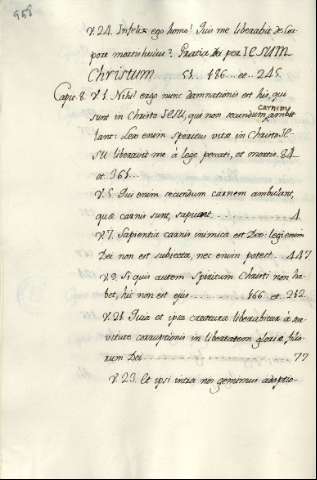 558
V. 24. Infelix ego homo! Quis me liberabit de Cor-
pore mortis huius? Gratia Dei per IESUM
Christum 51. 186. et. 245.
Capit. 8. V. 1. Nihil ergo nunc damnationis est his, qui
sunt in Christo IESU, qui non secundum carnem ambu-
lant: Lex enim spiritus vitæ in Christo IE-
SU liberavit me à lege peccati, et mortis. 84
et 361.
V. 5. Qui enim secundum carnem ambulant,
quæ carnis sunt, sapiunt 4
V. 7. Sapientia carnis inimica est Deo: legi enim
Dei non est subiecta, nec enim potest. 447
V. 9. Si quis autem Spiritum Christi non ha-
bet, hic non est eius 166 et 212
V. 21. Quia et ipsa creatura liberabitur à ser-
vitute corruptionis in libertatem gloriæ filio-
rum Dei 77
V. 23. Et ipsi intra nos gemimus adoptio-